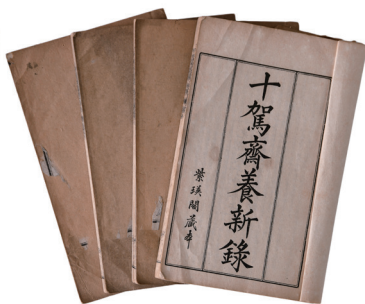 十駕齋養新錄
紫瑛閣藏本